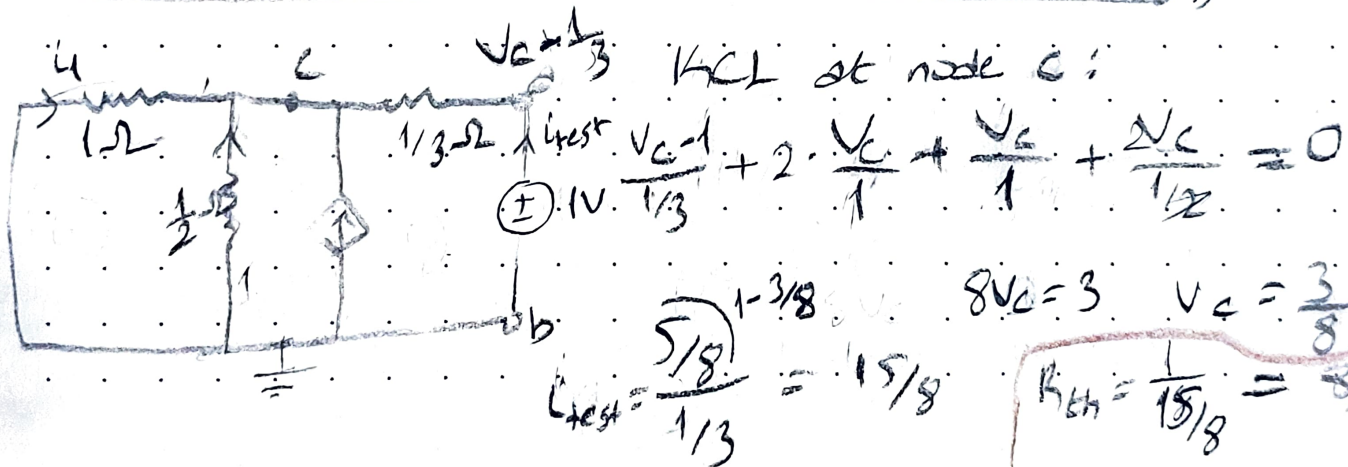 Vc-1/3
KCL at node c:
i₁
c
1Ω
1/3 Ω
itest
(Vc-1)/(1/3) + 2·Vc/1 + Vc/1 + 2Vc/(1/2) = 0
1/2 Ω
± 1V
1
1-3/8
8Vc = 3 Vc = 3/8
b
itest = (5/8)/(1/3) = 15/8
Rth = 1/(15/8) = 8